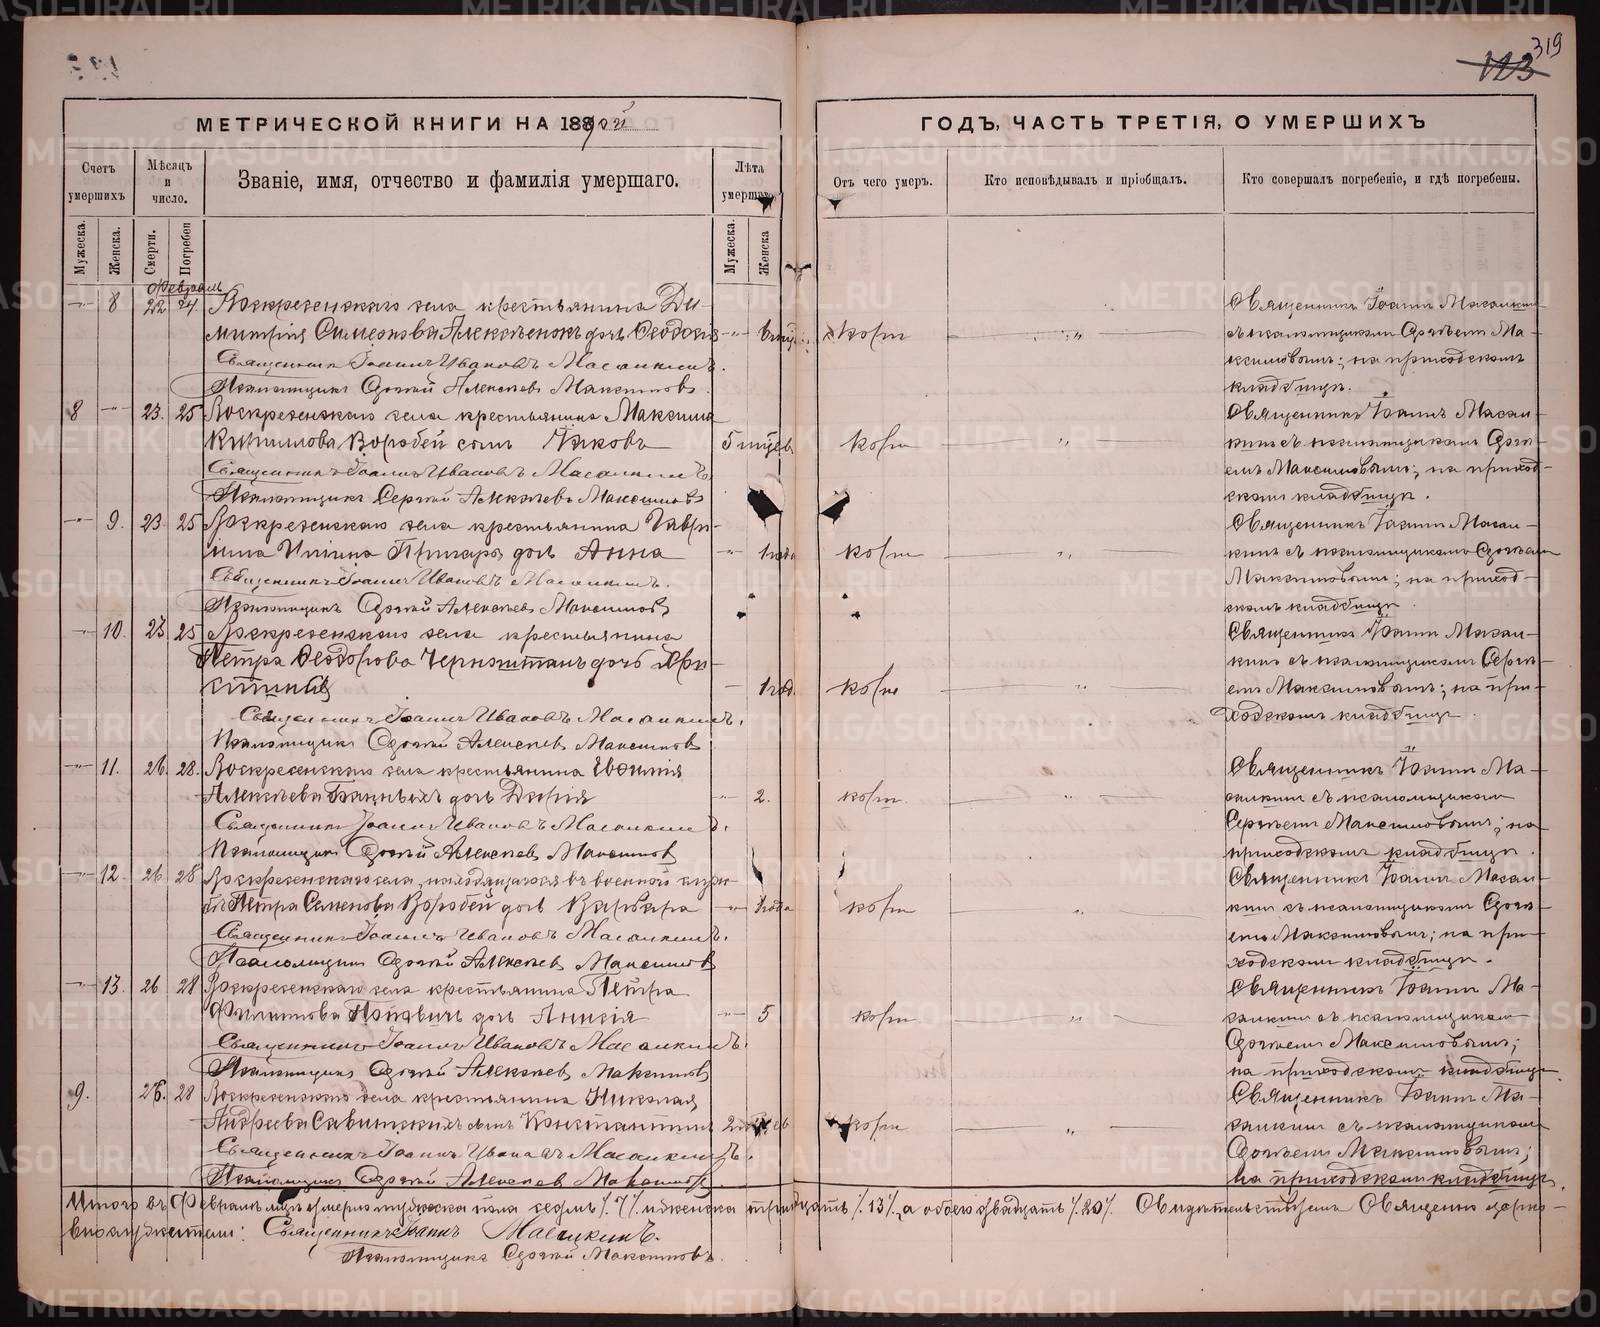 319
123
МЕТРИЧЕСКОЙ КНИГИ НА 1890й
ГОДЪ, ЧАСТЬ ТРЕТІЯ, О УМЕРШИХЪ
Счетъ умершихъ
Мѣсяцъ и число.
Званіе, имя, отчество и фамилія умершаго.
Лѣта умершаго
Отъ чего умеръ.
Кто исповѣдывалъ и пріобщалъ.
Кто совершалъ погребеніе, и гдѣ погребены.
Мужеска.
Женска.
Смерти.
Погребен
Мужеска.
Женска
Февраль
8 22 24 Воскресенскаго села крестьянина Ди-
митрія Симеонова дочь Ѳеодосія
кори
Священникъ Іоаннъ Ивановъ Масалкинъ.
Псаломщикъ Сергѣй Алексѣевъ Максимовъ
Священникъ Іоаннъ Масалкин
съ псаломщикомъ Сергѣем Ма-
ксимовымъ; на приходскомъ
кладбищѣ.
8 23. 25 Воскресенскаго села крестьянина Максима
Воробей сынъ Яковъ
5 мцев
кори
Священникъ Іоаннъ Ивановъ Масалкинъ
Псаломщикъ Сергѣй Алексѣевъ Максимовъ
Священникъ Іоаннъ Масал-
кинъ съ псаломщикомъ Серг-
емъ Максимовымъ; на приход-
скомъ кладбищѣ.
9. 23 25 Воскресенскаго села крестьянина Гаври-
іила дочь Анна
1 года
кори
Священникъ Іоаннъ Ивановъ Масалкинъ.
Псаломщикъ Сергѣй Алексѣевъ Максимовъ
Священникъ Іоаннъ Масал-
кинъ съ псаломщикомъ Сергѣем
Максимовымъ; на приход-
скомъ кладбищѣ.
10. 23 25 Воскресенскаго села крестьянина
Петра Ѳеодорова дочь Хри-
стина
1 год.
кори
Священникъ Іоаннъ Ивановъ Масалкинъ.
Псаломщикъ Сергѣй Алексѣевъ Максимовъ
Священникъ Іоаннъ Масал-
кинъ съ псаломщикомъ Сергѣ-
емъ Максимовымъ; на при-
ходскомъ кладбищѣ.
11. 26. 28. Воскресенскаго села крестьянина Евѳимія
Алексѣева дочь Дарія
2.
кори.
Священникъ Іоаннъ Ивановъ Масалкинъ.
Псаломщикъ Сергѣй Алексѣевъ Максимовъ
Священникъ Іоаннъ Ма-
салкинъ съ псаломщикомъ
Сергѣемъ Максимовымъ; на
приходскомъ кладбищѣ.
12 26 28 Воскресенскаго села, находящагося въ военной служ-
бѣ Петра Семенова Воробей дочь Варвара
1 года
кори
Священникъ Іоаннъ Ивановъ Масалкинъ.
Псаломщикъ Сергѣй Алексѣевъ Максимовъ
Священникъ Іоаннъ Масал-
кинъ съ псаломщикомъ Сергѣ-
емъ Максимовымъ; на при-
ходскомъ кладбищѣ.
13. 26 28 Воскресенскаго села крестьянина Петра
Филиппова дочь Анисія
5
кори.
Священникъ Іоаннъ Ивановъ Масалкинъ.
Псаломщикъ Сергѣй Алексѣевъ Максимовъ
Священникъ Іоаннъ Ма-
салкинъ съ псаломщикомъ
Сергѣемъ Максимовымъ;
на приходскомъ кладбищѣ.
9. 26. 28 Воскресенскаго села крестьянина Николая
Андреева сынъ Константинъ
кори
Священникъ Іоаннъ Ивановъ Масалкинъ.
Псаломщикъ Сергѣй Алексѣевъ Максимовъ
Священникъ Іоаннъ Ма-
салкинъ съ псаломщикомъ
Сергѣемъ Максимовымъ;
на приходскомъ кладбищѣ.
Итого въ Февралѣ мцѣ умерло мужеска пола семь /7/, женска тринадцать /13/, а обоего двадцать /20/. Свидѣтельствуемъ Священно церко-
внослужители: Священникъ Іоаннъ Масалкинъ.
Псаломщикъ Сергѣй Максимовъ.
METRIKI.GASO-URAL.RU